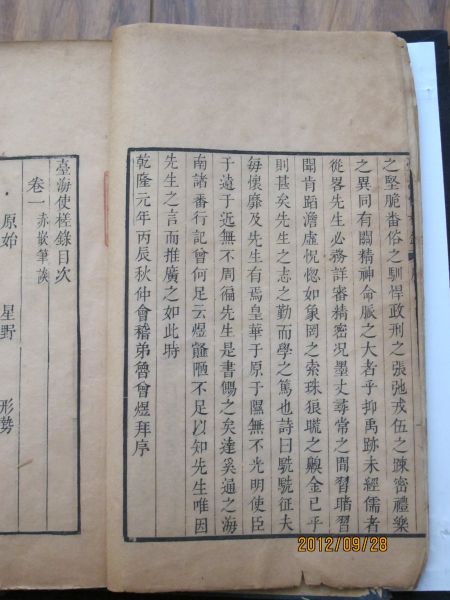 之堅脆畨俗之馴悍政刑之張弛戎伍之踈密禮樂
之異同有關精神命脈之大者乎抑禹跡未經儒者
從畧先生必務詳審精密况墨丈尋常之間習睹習
聞肯蹈澹虛怳惚如象罔之索珠狼𦿆之齅金已乎
則甚矣先生之志之勤而學之篤也詩曰駪駪征夫
每懷靡及先生有焉皇華于原于隰無不光明使臣
于遠于近無不周徧先生是書賜之矣達奚通之海
南諸番行記曾何足云煜謭陋不足以知先生唯因
先生之言而推廣之如此時
乾隆元年丙辰秋仲會稽弟魯曾煜拜序
臺海使槎錄目次
卷一 赤嵌筆談
原始 星野 形勢
2012/09/28